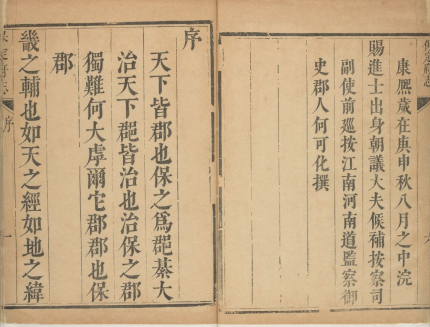 康熈歲在庚申秋八月之中浣
賜進士出身朝議大夫候補按察司
副使前廵按江南河南道監察御
史郡人何可化撰
序
天下皆郡也保之爲郡綦大
治天下郡皆治也治保之郡
獨難何大虖爾它郡郡也保
郡
畿之輔也如天之經如地之緯
序
一